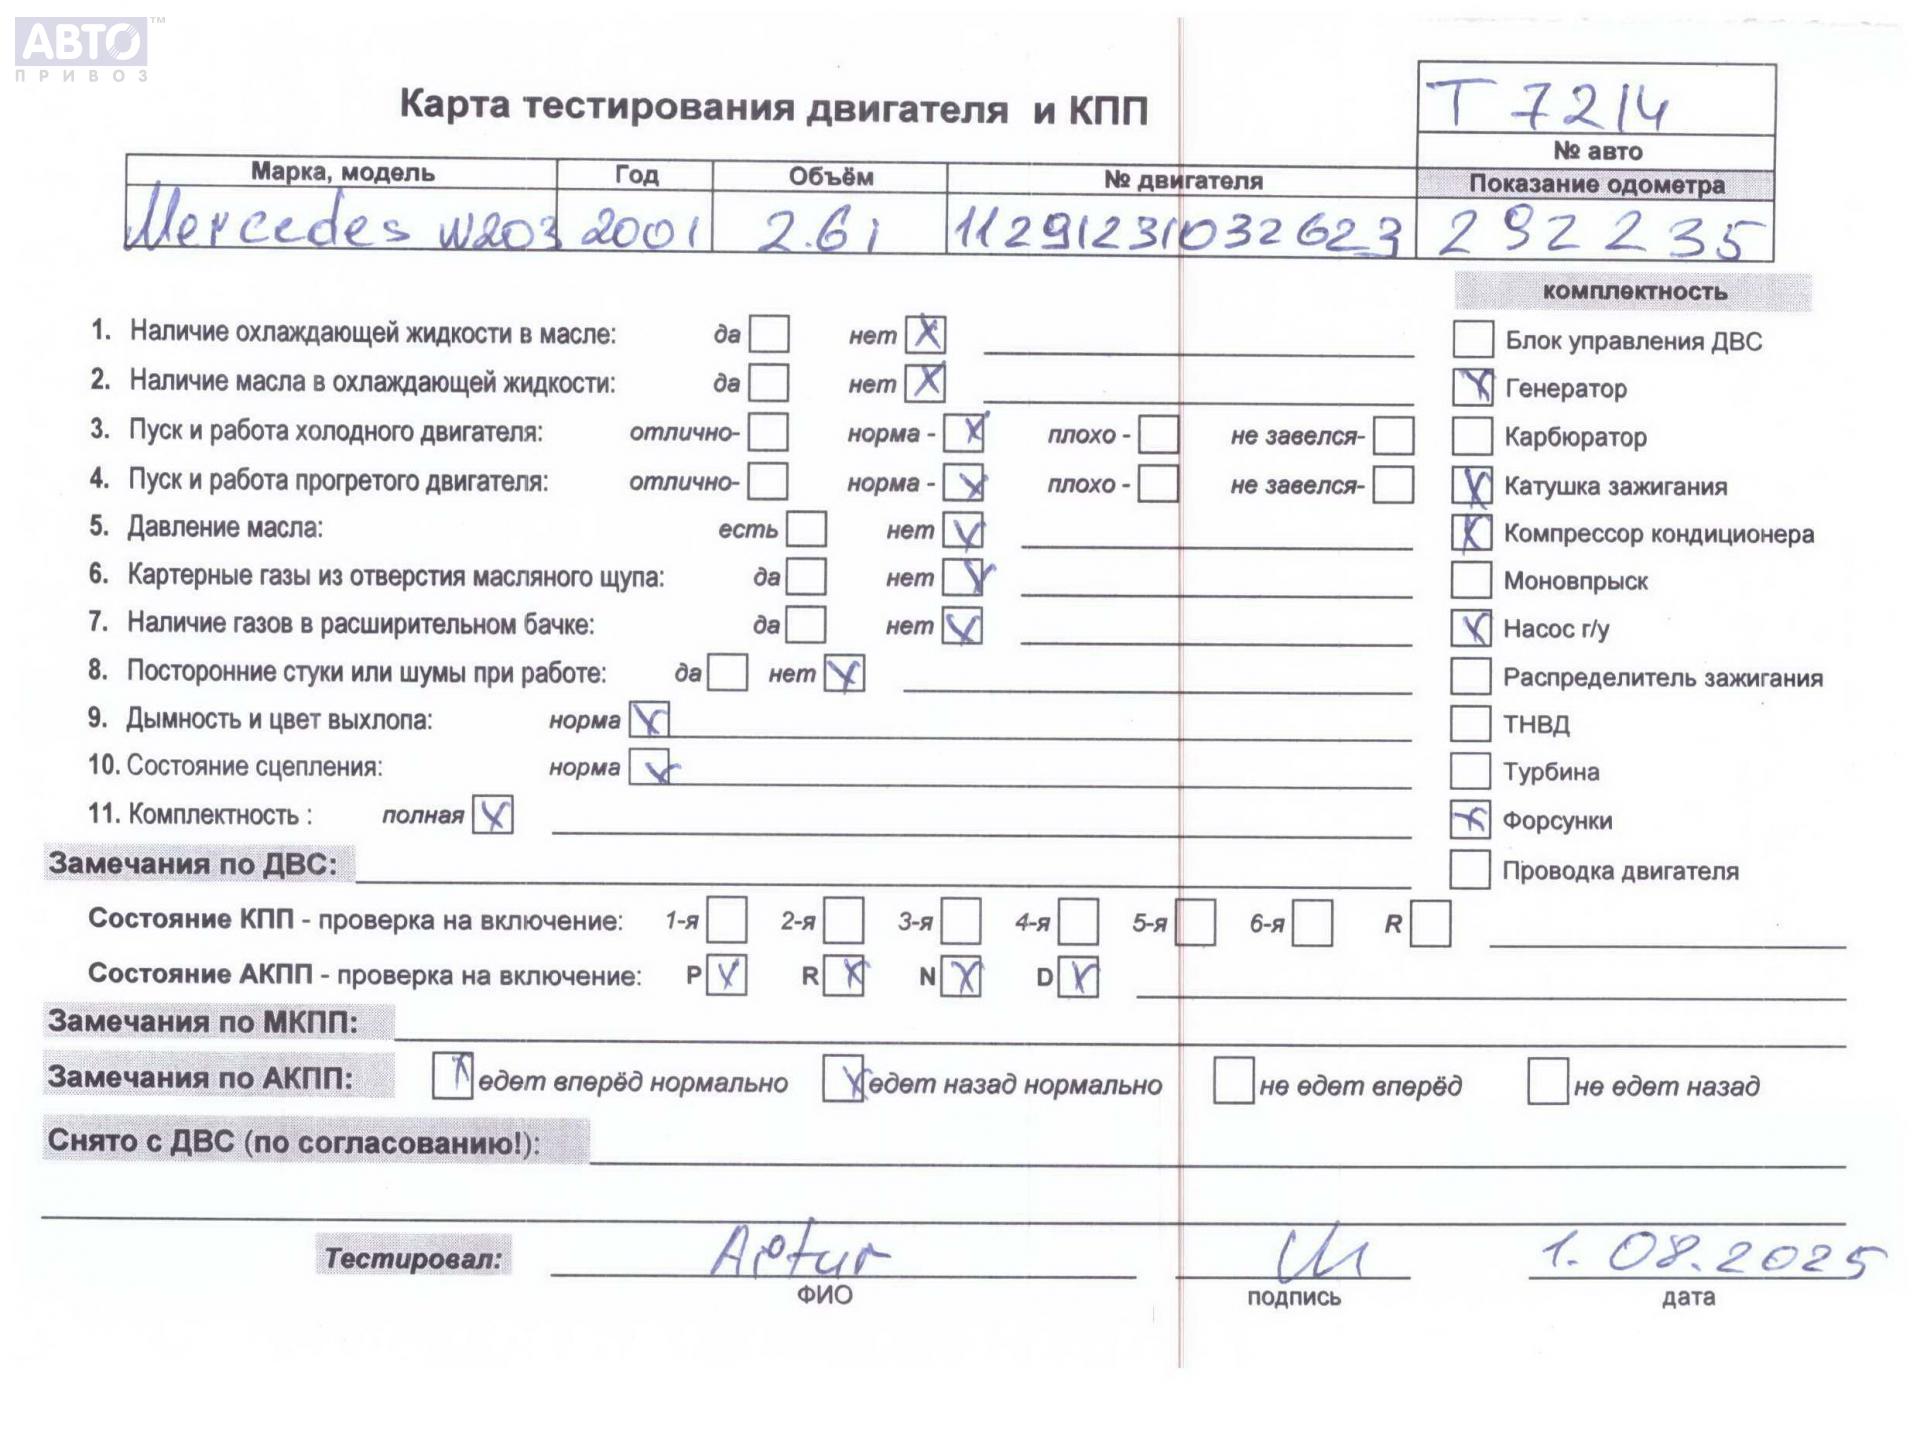 АВТО™
ПРИВОЗ
Карта тестирования двигателя и КПП
T 7214
№ авто
Марка, модель Год Объём № двигателя Показание одометра
Mercedes W203 2001 2.6i 11291231032623 292235
комплектность
1. Наличие охлаждающей жидкости в масле: да нет X
Блок управления ДВС
2. Наличие масла в охлаждающей жидкости: да нет X
X Генератор
3. Пуск и работа холодного двигателя: отлично- норма - X плохо - не завелся-
Карбюратор
4. Пуск и работа прогретого двигателя: отлично- норма - X плохо - не завелся-
X Катушка зажигания
5. Давление масла: есть нет X
X Компрессор кондиционера
6. Картерные газы из отверстия масляного щупа: да нет X
Моновпрыск
7. Наличие газов в расширительном бачке: да нет X
X Насос г/у
8. Посторонние стуки или шумы при работе: да нет X
Распределитель зажигания
9. Дымность и цвет выхлопа: норма X
ТНВД
10. Состояние сцепления: норма X
Турбина
11. Комплектность : полная X
X Форсунки
Замечания по ДВС:
Проводка двигателя
Состояние КПП - проверка на включение: 1-я 2-я 3-я 4-я 5-я 6-я R
Состояние АКПП - проверка на включение: P X R X N X D X
Замечания по МКПП:
Замечания по АКПП: X едет вперёд нормально X едет назад нормально не едет вперёд не едет назад
Снято с ДВС (по согласованию!):
Тестировал: Artur 1.08.2025
ФИО подпись дата